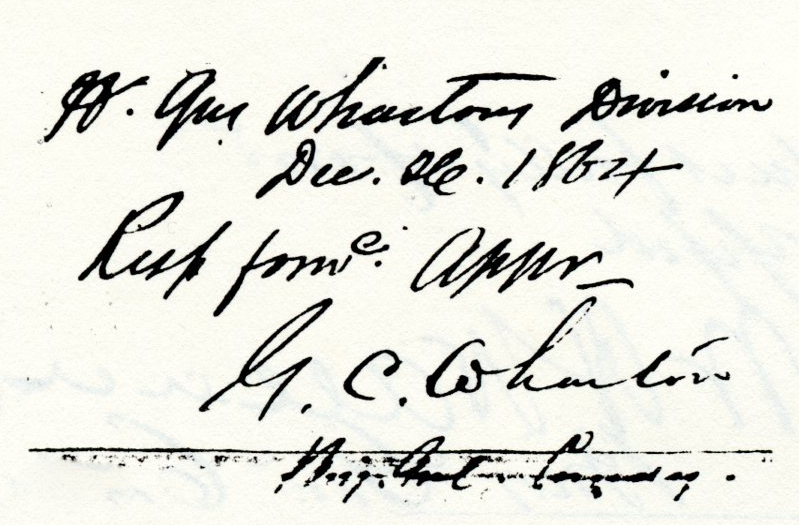 H. Qrs Whartons Division
Dec. 1864
Resp forwd. Appr
G. C. Wharton
Brig. Genl